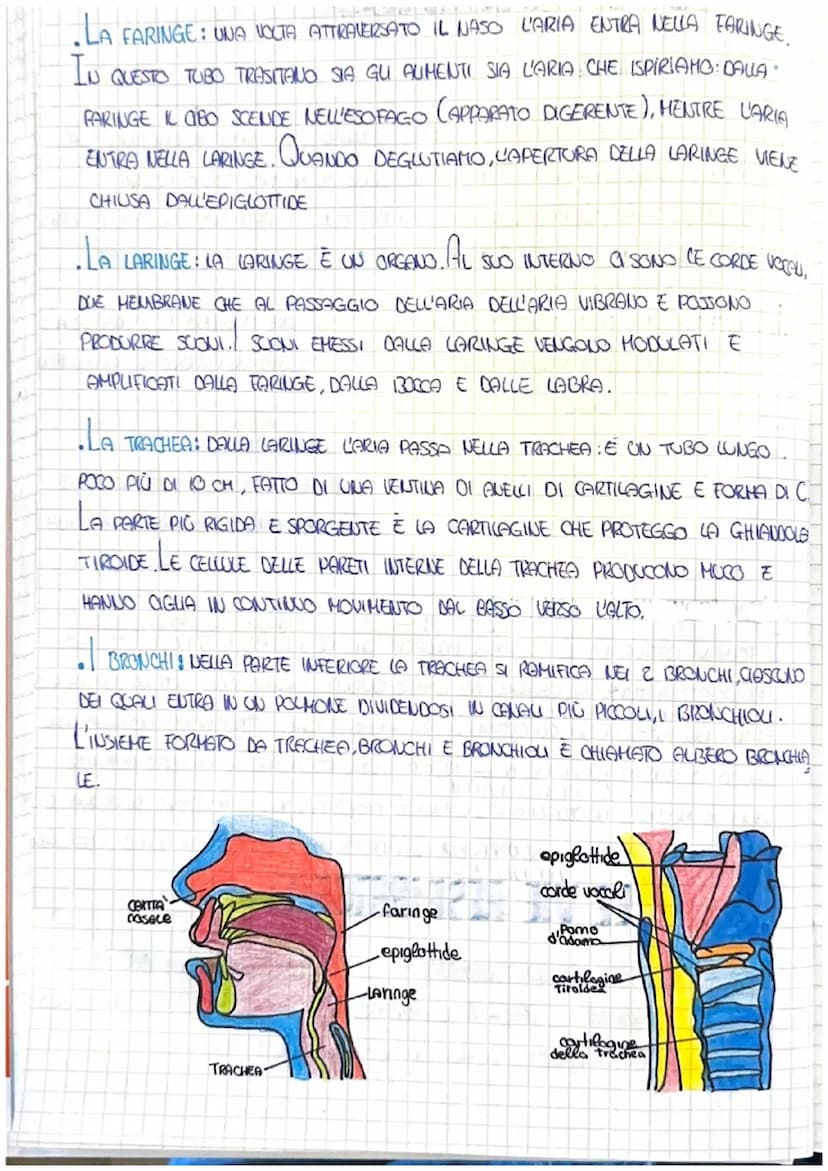 . LA FARINGE: UNA VOLTA ATTRAVERSATO IL NASO L'ARIA ENTRA NELLA FARINGE.
IN QUESTO TUBO TRASITANO SIA GLI ALIMENTI SIA L'ARIA CHE ISPIRIAMO: DALLA
FARINGE IL CIBO SCENDE NELL'ESOFAGO (APPARATO DIGERENTE), MENTRE L'ARIA
ENTRA NELLA LARINGE. QUANDO DEGLUTIAMO, L'APERTURA DELLA LARINGE VIENE
CHIUSA DALL'EPIGLOTTIDE
. LA LARINGE: LA LARINGE È UN ORGANO. AL SUO INTERNO CI SONO LE CORDE VOCALI,
DUE MEMBRANE CHE AL PASSAGGIO DELL'ARIA DELL'ARIA VIBRANO E POSSONO
PRODURRE SUONI. I SUONI EMESSI DALLA LARINGE VENGONO MODULATI E
AMPLIFICATI DALLA FARINGE, DALLA BOCCA E DALLE LABRA.
. LA TRACHEA: DALLA LARINGE L'ARIA PASSA NELLA TRACHEA: È UN TUBO LUNGO
POCO PIÙ DI 10 CM, FATTO DI UNA VENTINA DI ANELLI DI CARTILAGINE E FORMA DI C.
LA PARTE PIÙ RIGIDA E SPORGENTE È LA CARTILAGINE CHE PROTEGGO LA GHIANDOLA
TIROIDE. LE CELLULE DELLE PARETI INTERNE DELLA TRACHEA PRODUCONO MUCO E
HANNO CIGLIA IN CONTINUO MOVIMENTO DAL BASSO VERSO L'ALTO.
. I BRONCHI: NELLA PARTE INFERIORE LA TRACHEA SI RAMIFICA NEI 2 BRONCHI, CIASCUNO
DEI QUALI ENTRA IN UN POLMONE DIVIDENDOSI IN CANALI PIÙ PICCOLI, I BRONCHIOLI.
L'INSIEME FORMATO DA TRACHEA, BRONCHI E BRONCHIOLI È CHIAMATO ALBERO BRONCHIA
LE.
CAVITÀ
nasale
faringe
epiglottide
Laringe
TRACHEA
epiglottide
corde vocali
Pomo
d'adamo
cartilagine
Tiroidea
cartilagine
della trachea